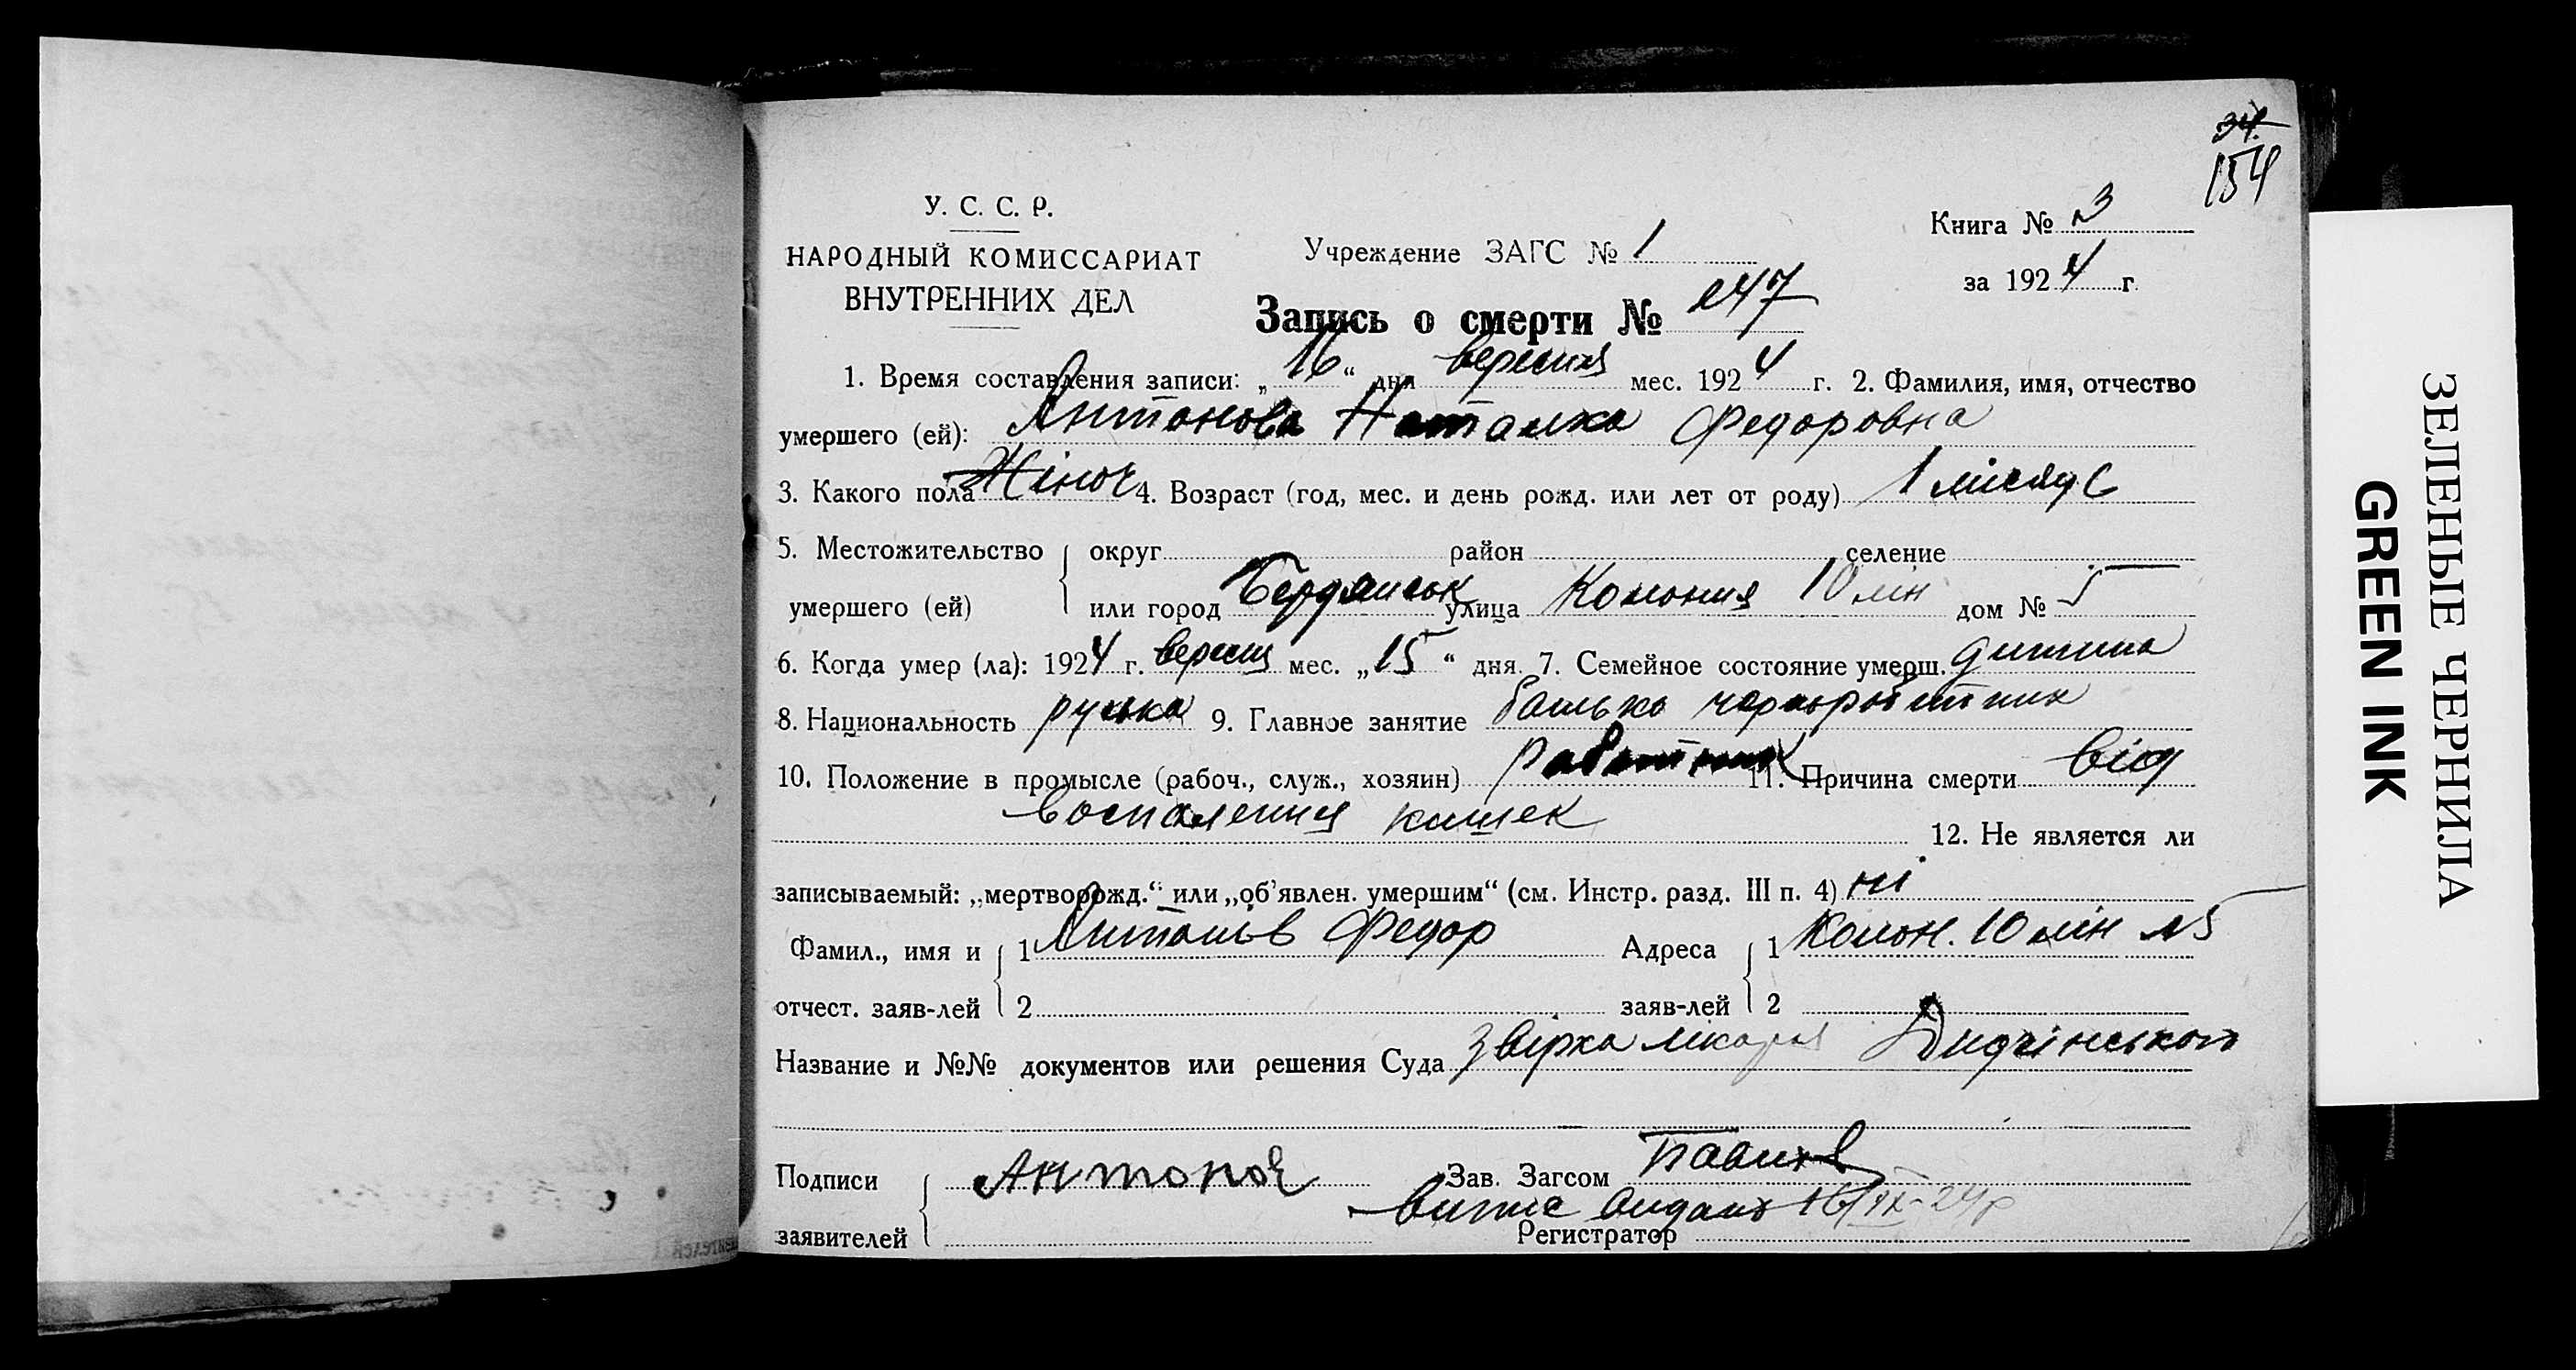 34.
154
У. С. С. Р.
НАРОДНЫЙ КОМИССАРИАТ
ВНУТРЕННИХ ДЕЛ
Учреждение ЗАГС № 1
Книга № 3
за 1924 г.
Запись о смерти № 247
1. Время составления записи: „16“ дня вересня мес. 1924 г. 2. Фамилия, имя, отчество
умершего (ей): Антонова Наталка Федоровна
3. Какого пола Жіноч 4. Возраст (год, мес. и день рожд. или лет от роду) 1 місяц
5. Местожительство округ район селение
умершего (ей) или город Бердянськ улица Колония 10 лін дом № 5
6. Когда умер (ла): 1924 г. вересня мес. „15“ дня. 7. Семейное состояние умерш. дитина
8. Национальность руська 9. Главное занятие батько чорноробітник
10. Положение в промысле (рабоч., служ., хозяин) 11. Причина смерти від
воспаления кишек 12. Не является ли
записываемый: „мертворожд.“ или „об’явлен. умершим“ (см. Инстр. разд. III п. 4) ні
Фамил., имя и 1 Антонів Федор Адреса 1 Колон. 10 лін № 5
отчест. заяв-лей 2 заяв-лей 2
Название и №№ документов или решения Суда лікаря
Подписи Антонов Зав. Загсом
видано 16/IX-24р
заявителей Регистратор
ЗЕЛЕНЫЕ ЧЕРНИЛА
GREEN INK